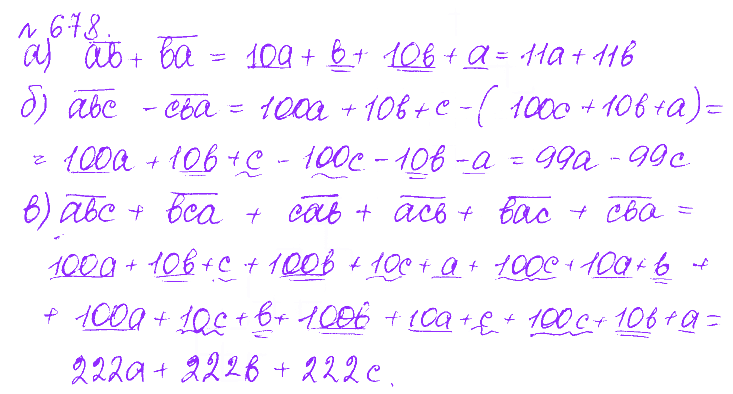 №678.
а) a̅b̅ + b̅a̅ = 10a + b + 10b + a = 11a + 11b
б) a̅b̅c̅ - c̅b̅a̅ = 100a + 10b + c - ( 100c + 10b + a ) =
= 100a + 10b + c - 100c - 10b - a = 99a - 99c
в) a̅b̅c̅ + b̅c̅a̅ + c̅a̅b̅ + a̅c̅b̅ + b̅a̅c̅ + c̅b̅a̅ =
100a + 10b + c + 100b + 10c + a + 100c + 10a + b +
+ 100a + 10c + b + 100b + 10a + c + 100c + 10b + a =
222a + 222b + 222c.